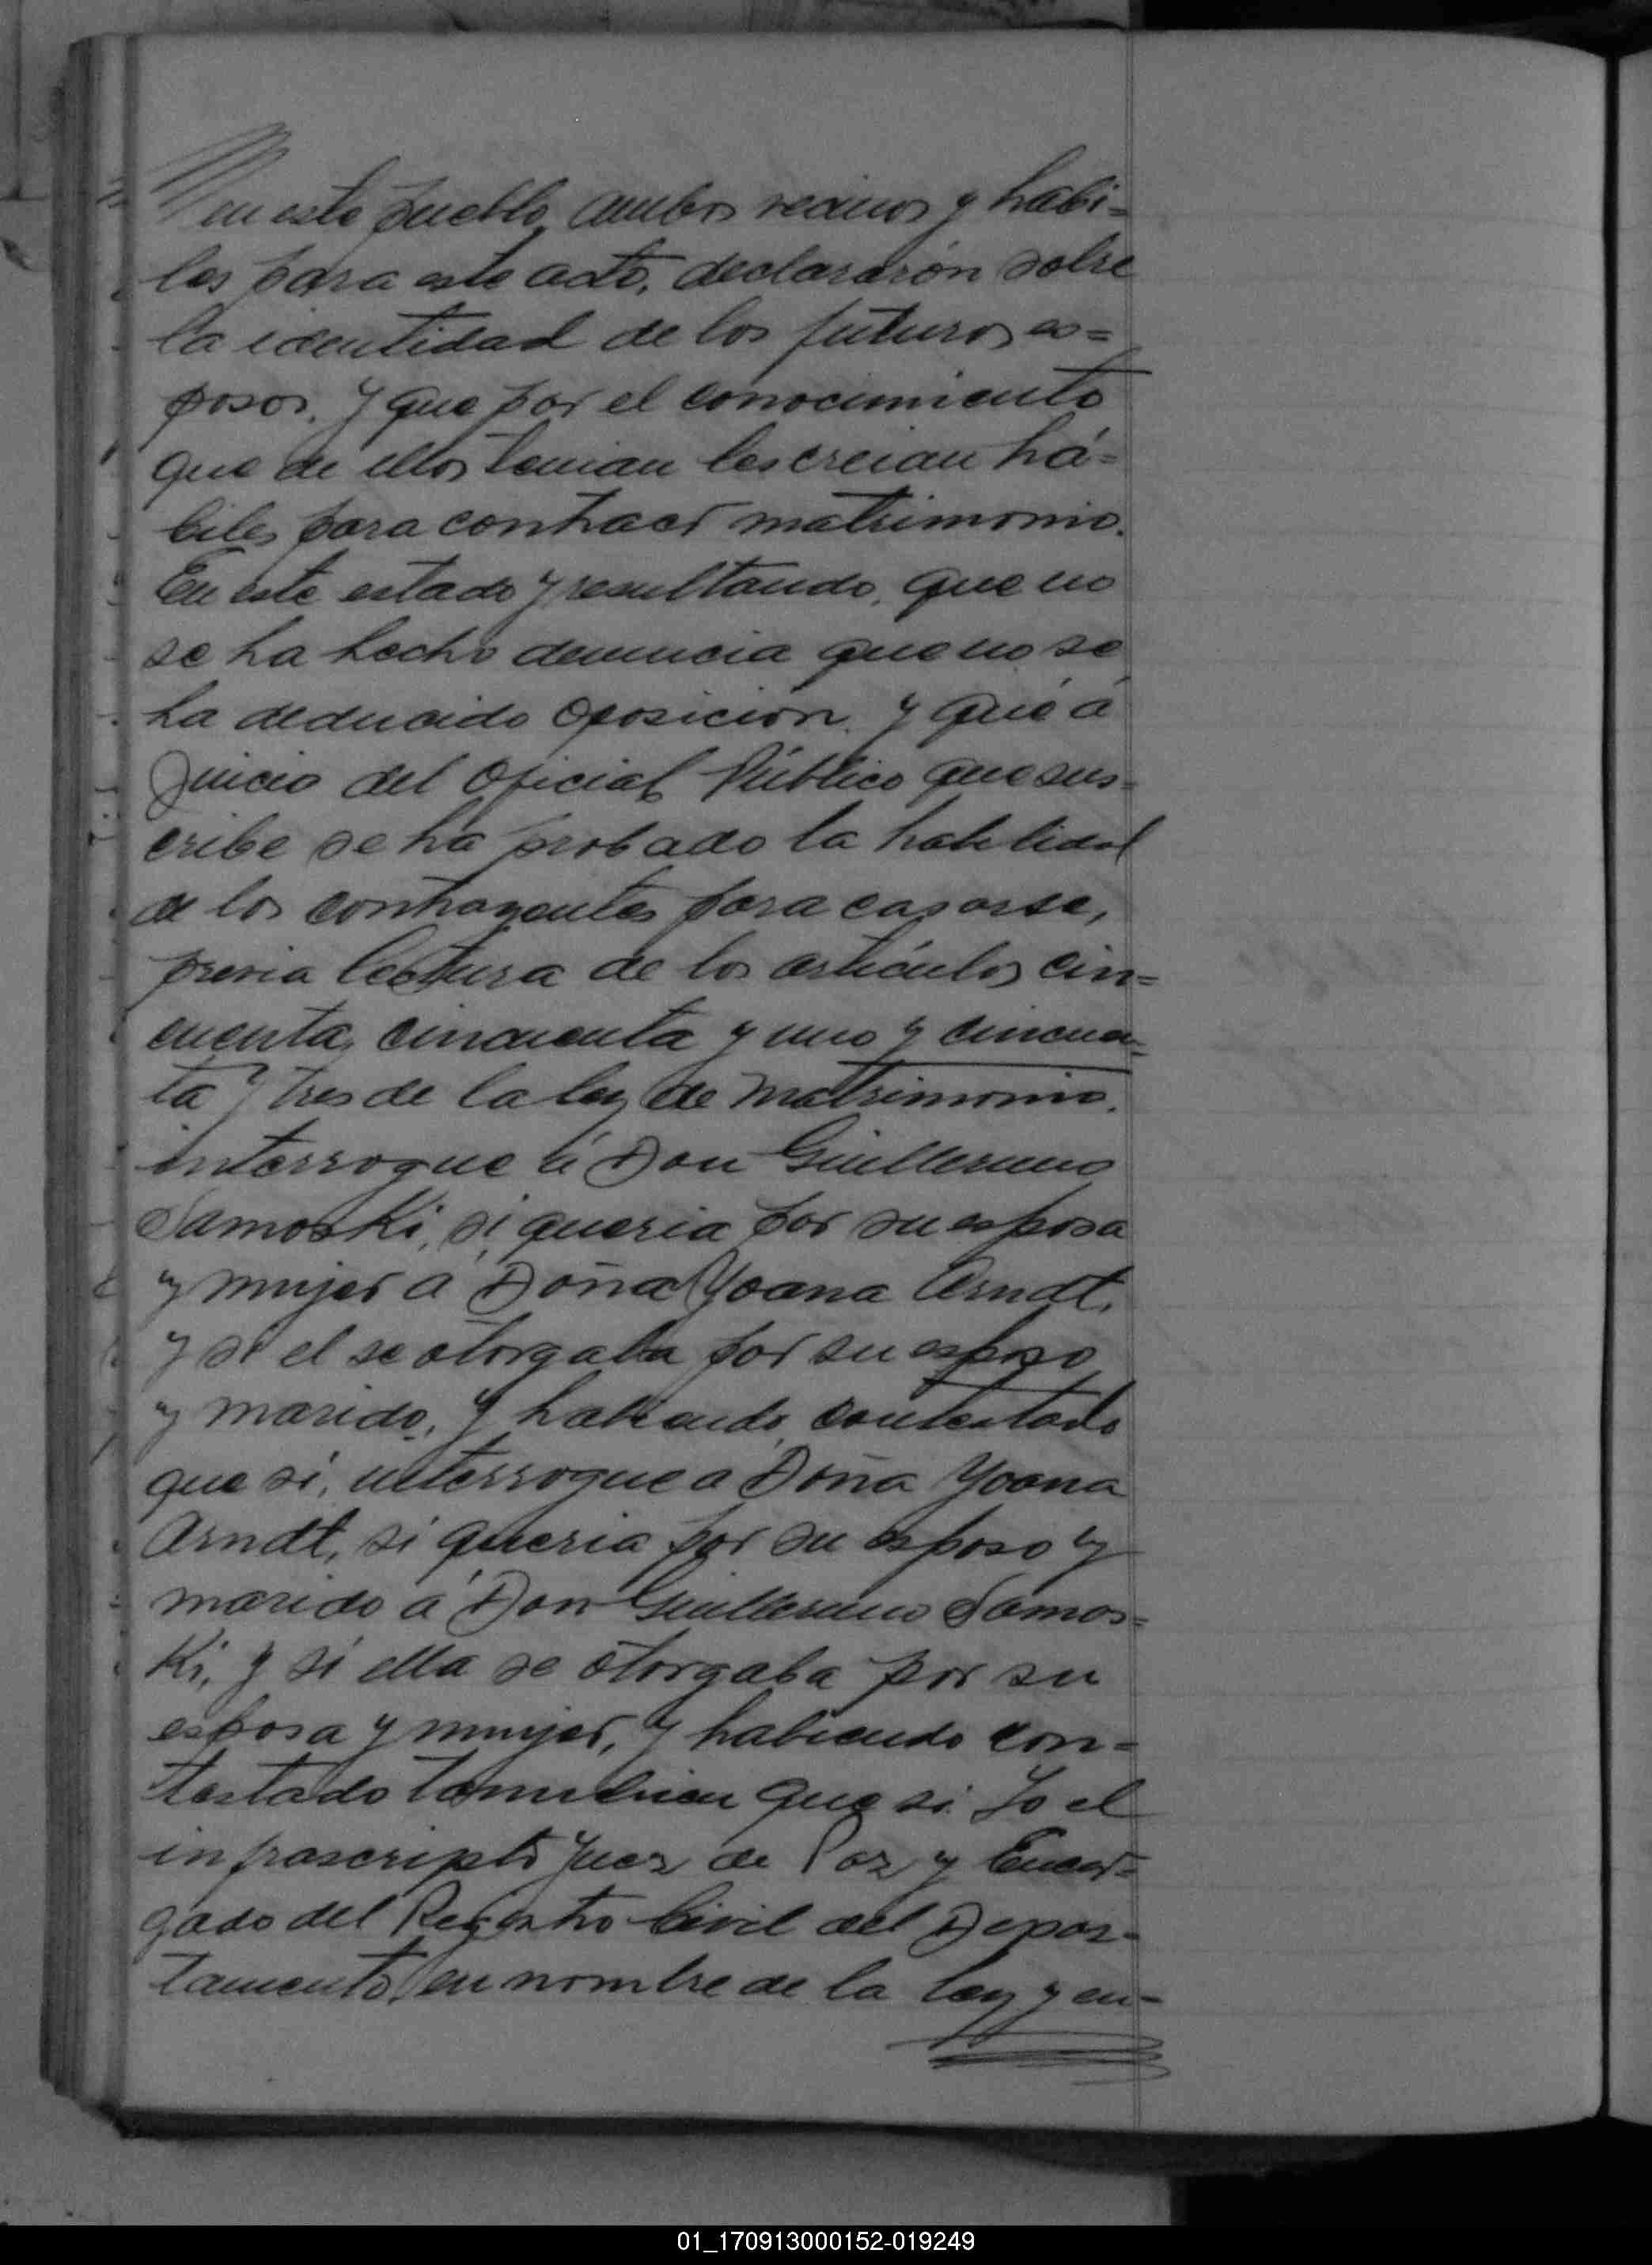 en este pueblo, ambos vecinos y hábi=
les para este acto, declararon sobre
la identidad de los futuros es=
posos, y que por el conocimiento
que de ellos tenian les creian há=
biles para contraer matrimonio.
En este estado y resultando, que no
se ha hecho denuncia que no se
ha deducido oposición, y que á
juicio del Oficial Público que sus=
cribe se ha probado la habilidad
de los contrayentes para casarse,
previa lectura de los artículos cin=
cuenta, cincuenta y uno y cincuen=
ta y tres de la ley de matrimonio.
interrogue á Don Guillermo
Samoski, si queria por su esposa
y mujer á Doña Yoana Arndt,
y si el se otorgaba por su esposo
y marido, y habiendo contestado
que si, interrogue a Doña Yoana
Arndt, si queria por su esposo y
marido á Don Guillermo Samos=
ki, y si ella se otorgaba por su
esposa y mujer, y habiendo con=
testado tambien que si. Yo el
infrascripto Juez de Paz y Encar=
gado del Registro Civil del Depar=
tamento, en nombre de la ley y en=
01_170913000152-019249